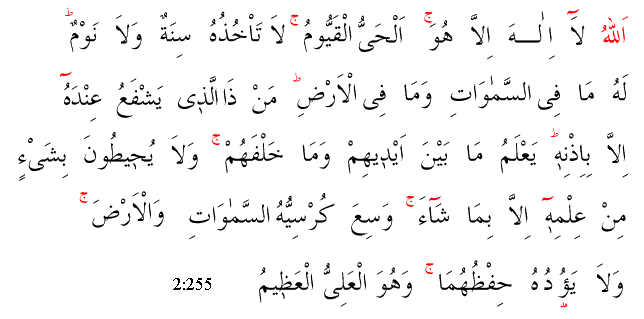 اَللّٰهُ لَٓا اِلٰـــهَ اِلَّا هُوَۚ اَلْحَىُّ الْقَيُّومُۚ لَا تَاْخُذُهُ سِنَةٌ وَلَا نَوْمٌۜ
لَهُ مَا فِى السَّمٰوَاتِ وَمَا فِى الْاَرْضِۜ مَنْ ذَا الَّذٖى يَشْفَعُ عِنْدَهُٓ
اِلَّا بِاِذْنِهٖۜ يَعْلَمُ مَا بَيْنَ اَيْدٖيهِمْ وَمَا خَلْفَهُمْۚ وَلَا يُحٖيطُونَ بِشَىْءٍ
مِنْ عِلْمِهٖٓ اِلَّا بِمَا شَٓاءَۚ وَسِعَ كُرْسِيُّهُ السَّمٰوَاتِ وَالْاَرْضَۚ
وَلَا يَؤُدُهُ حِفْظُهُمَاۚ وَهُوَ الْعَلِىُّ الْعَظٖيمُ 2:255